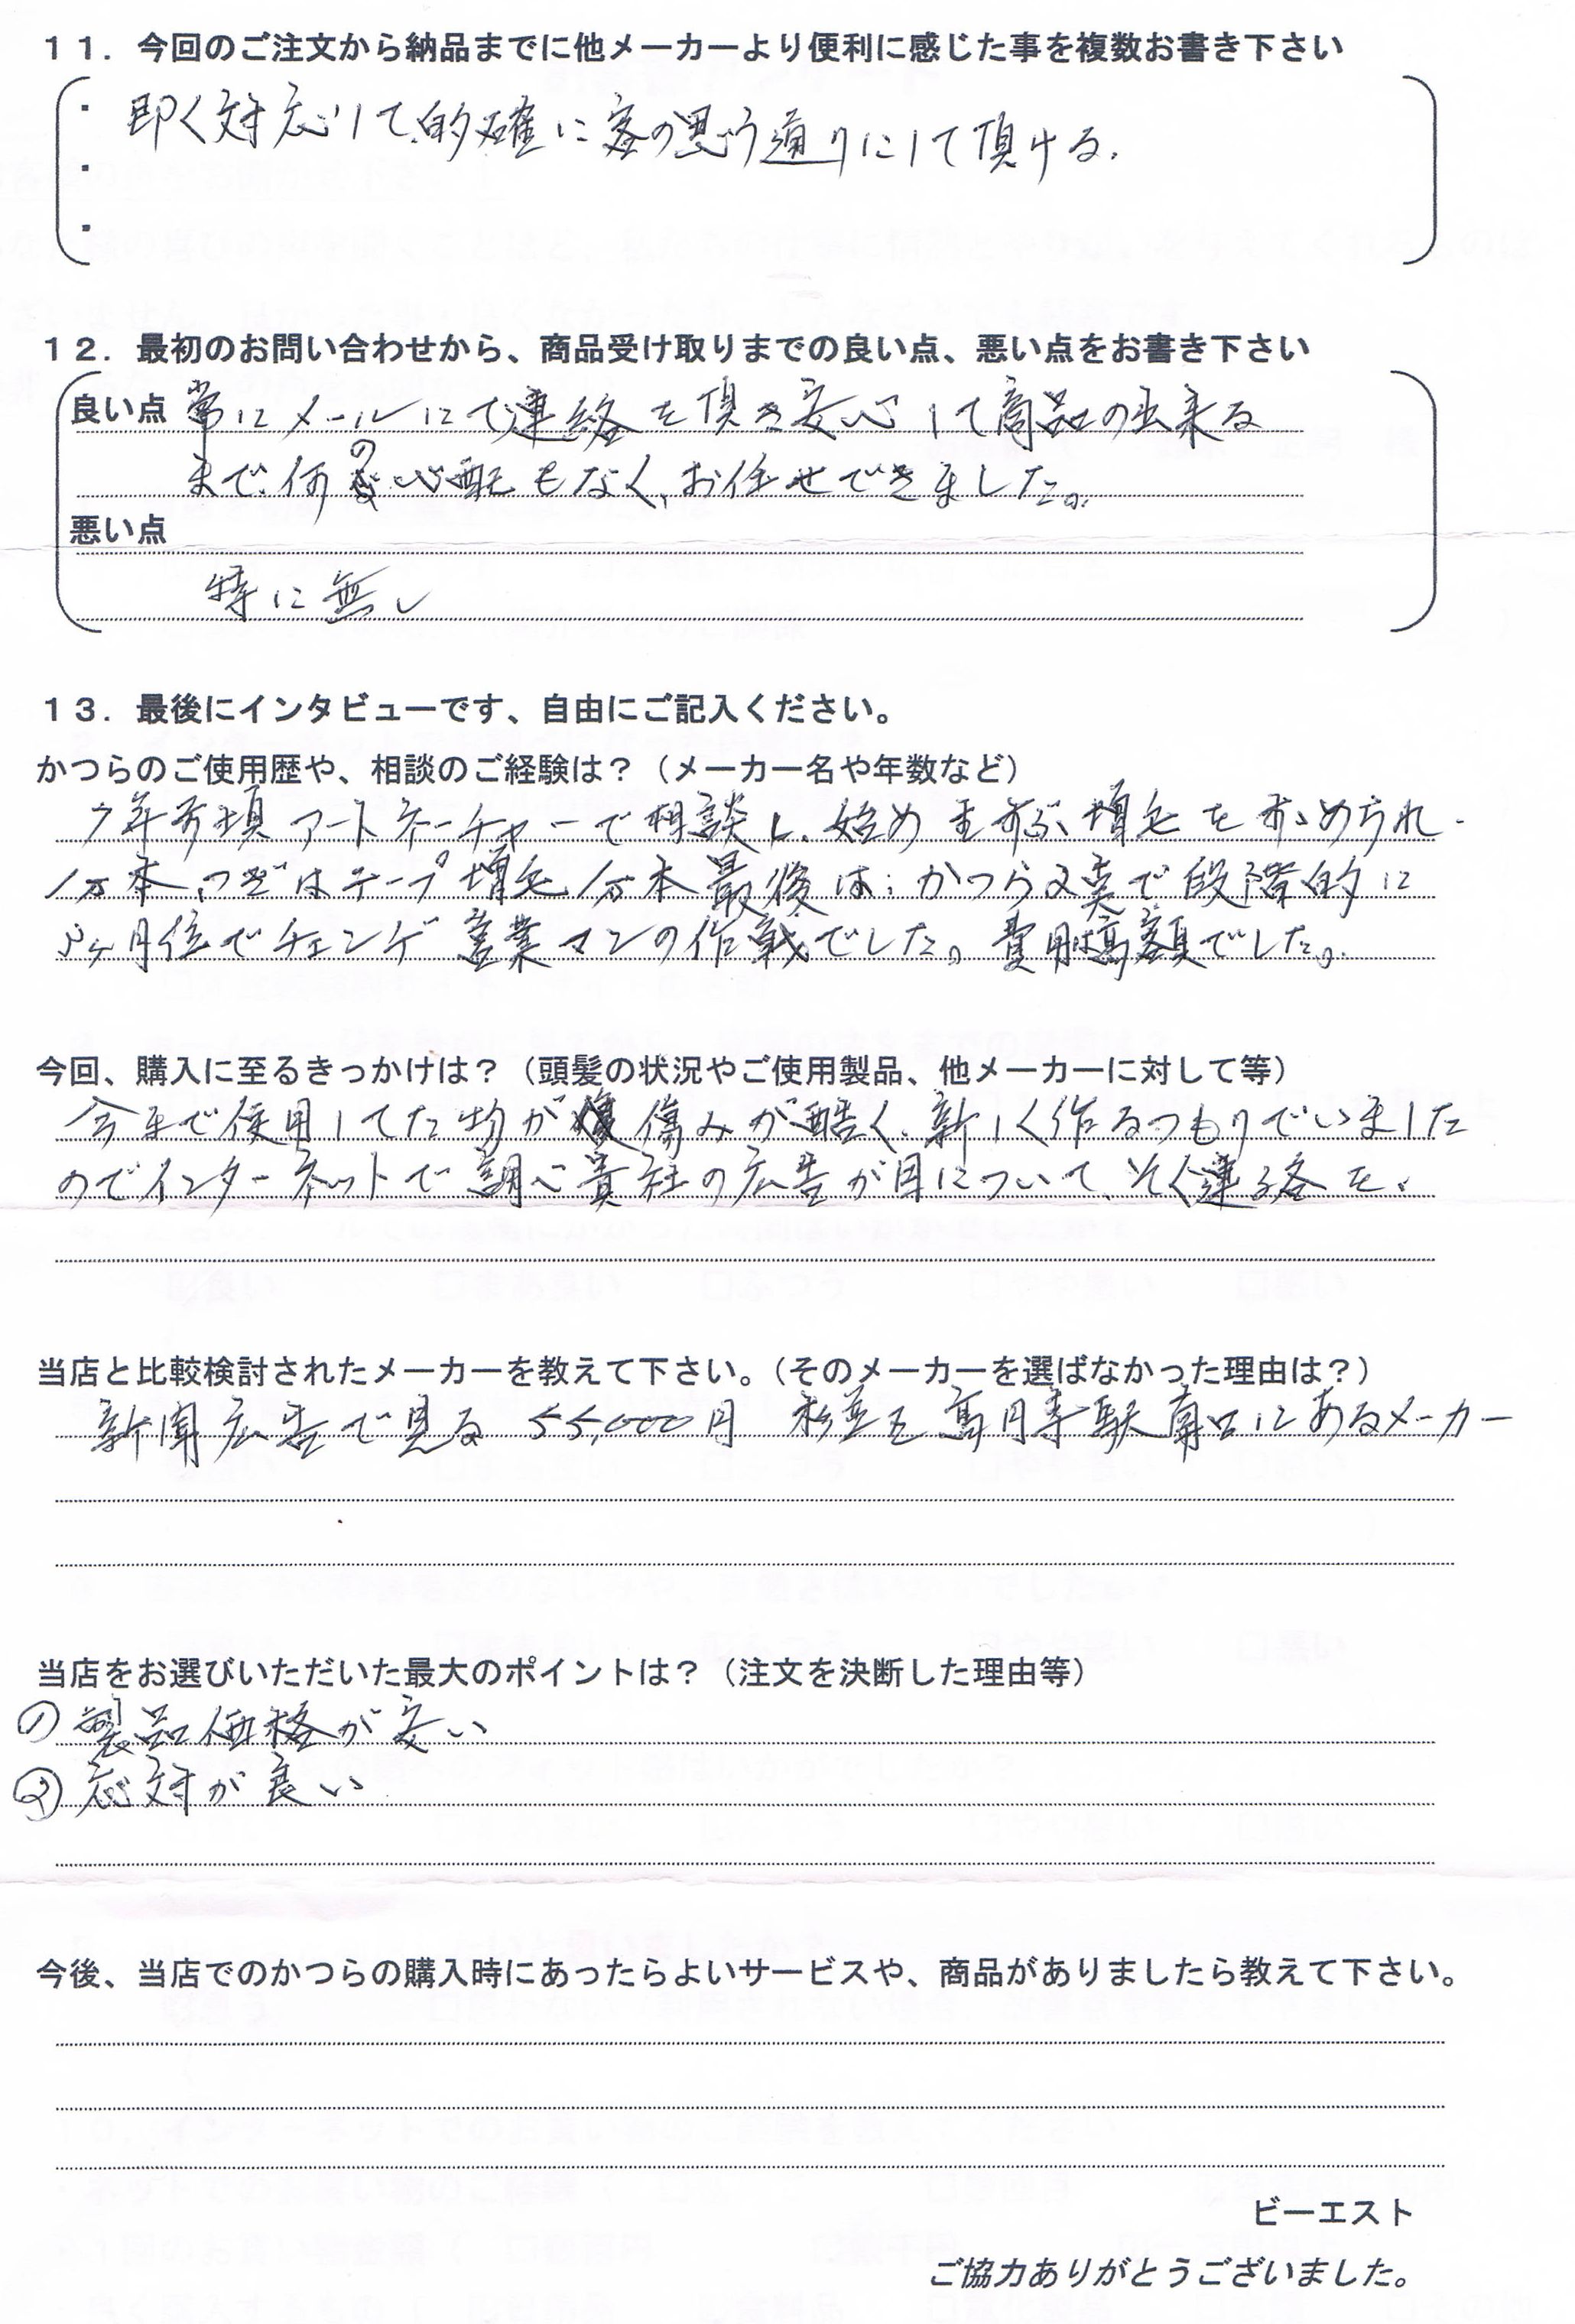 11. 今回のご注文から納品までに他メーカーより便利に感じた事を複数お書き下さい
・ 即く対応して、的確に客の思う通りにして頂ける.
・
・
12. 最初のお問い合わせから、商品受け取りまでの良い点、悪い点をお書き下さい
良い点 常にメールにて連絡を頂き安心して商品の出来る
まで、何の心配もなく、お任せできました。
悪い点
特に無し
13. 最後にインタビューです、自由にご記入ください。
かつらのご使用歴や、相談のご経験は?（メーカー名や年数など）
7年前頃 アートネーチャーで相談し、始め 増毛を すゝめられ
1万本、つぎはテープ増毛 1万本 最後は: かつら 段階的に
ヶ月位でチェンヂ 営業マンの作戦でした。費用は高額でした。
今回、購入に至るきっかけは?（頭髪の状況やご使用製品、他メーカーに対して等）
今まで使用してた物が 傷みが酷く、新しく作るつもりでいました
のでインターネットで調べ貴社の広告が目について、そく連絡を.
当店と比較検討されたメーカーを教えて下さい。（そのメーカーを選ばなかった理由は?）
新聞広告で見る 55,000円 高円寺駅南口にあるメーカー
当店をお選びいただいた最大のポイントは?（注文を決断した理由等）
① 製品価格が安い
② 応対が良い
今後、当店でのかつらの購入時にあったらよいサービスや、商品がありましたら教えて下さい。
ビーエスト
ご協力ありがとうございました。